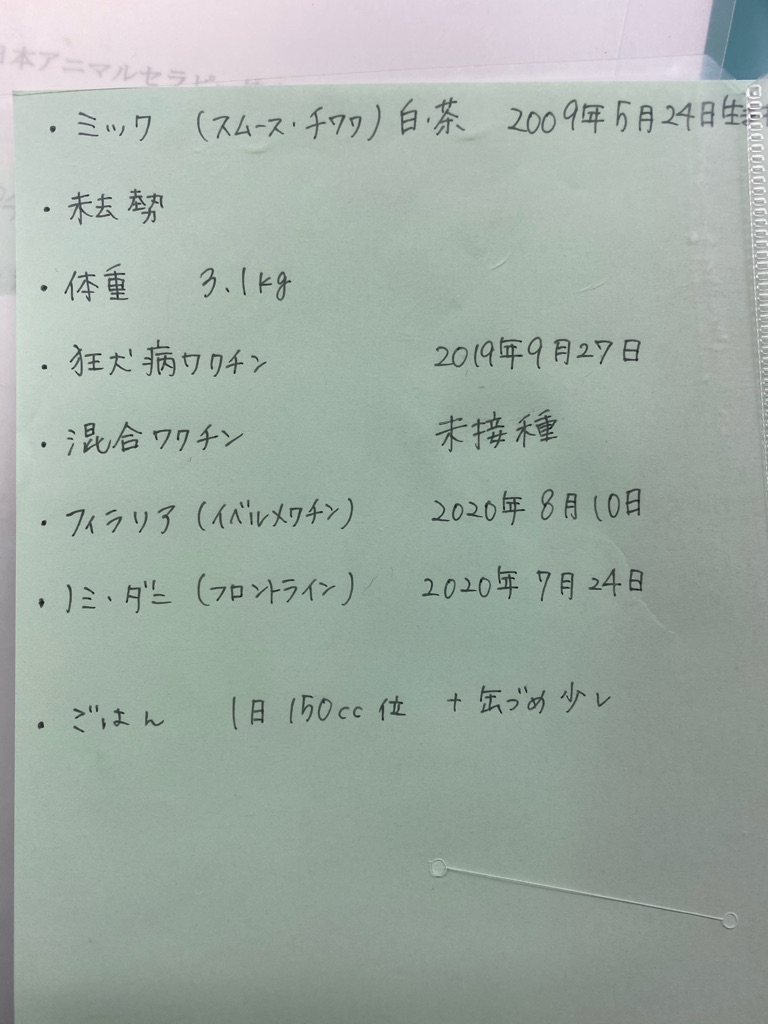 日本アニマルセラピー
・ミック （スムース・チワワ）白・茶 2009年5月24日生
・未去勢
・体重 3.1kg
・狂犬病ワクチン 2019年9月27日
・混合ワクチン 未接種
・フィラリア（イベルメクチン） 2020年8月10日
・ノミ・ダニ（フロントライン） 2020年7月24日
・ごはん 1日150cc位 + 缶づめ少し